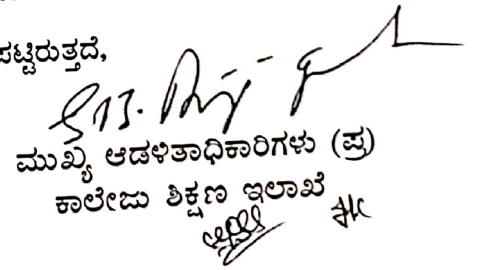 ಪಟ್ಟಿರುತ್ತದೆ,
ಮುಖ್ಯ ಆಡಳಿತಾಧಿಕಾರಿಗಳು (ಪ್ರ)
ಕಾಲೇಜು ಶಿಕ್ಷಣ ಇಲಾಖೆ